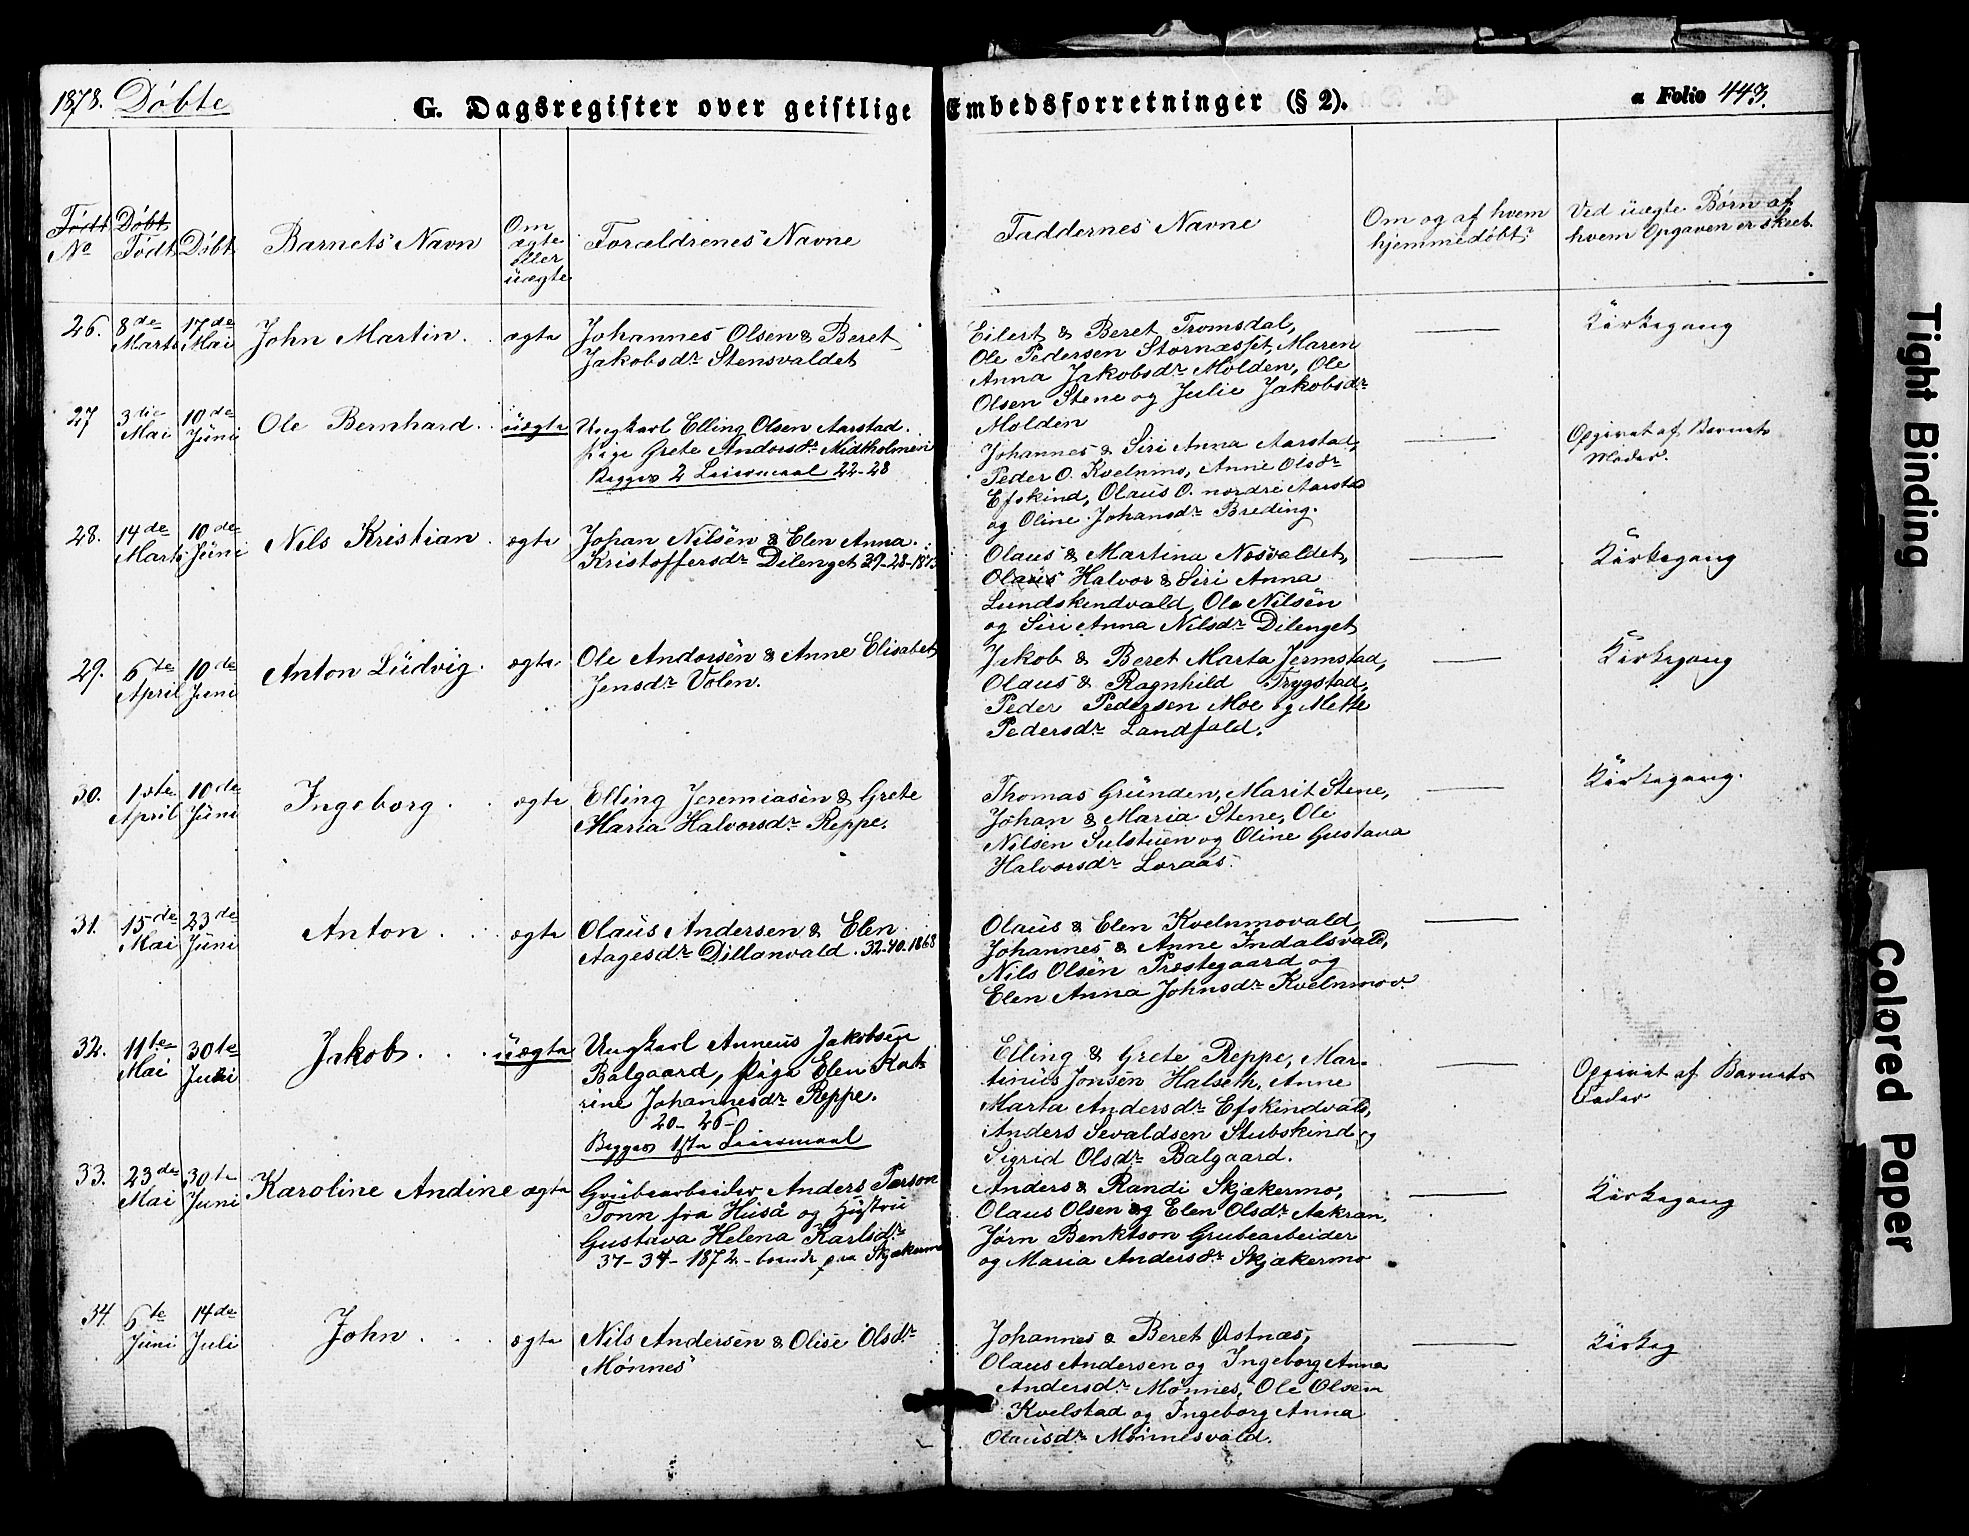 1878. Döbte
G. Dagsregister over geistlige Embedsforretninger (§ 2).
a Folio 443.
Födt Döbt
No Födt Döbt Barnets Navn Om ægte eller uægte Forældrenes Navne Faddernes Navne Om og af hvem hjemmedöbt? Ved uægte Börn af hvem Opgaven er skeet.
26. 8de Marts 17de Mai John Martin. ægte
Johannes Olsen & Beret
Jakobsdr Stensvaldet
Eilert & Beret Tromsdal,
Ole Pedersen Stornæsset, Maren
Anna Jakobsdr Molden, Ole
Olsen Stene og Julie Jakobsdr
Molden
Kirkegang
27 3die Mai 10de Juni Ole Bernhard. uægte
Ungkarl Elling Olsen Aarstad.
pige Grete Andersdr Midtholmen
Begges 2 Leiermaal 22-28
Johannes & Siri Anna Aarstad,
Peder O. Kvelmo, Anne Olsdr
Efskind, Olaus O. nordre Aarstad
og Oline Johansdr Breding.
Opgivet af Barnets
Moder.
28. 14de Marts 10de Juni Nils Kristian. ægte
Johan Nilsen & Elen Anna
Kristoffersdr Dilenget 27-28-1873
Olaus & Martina Næsvaldet,
Olaus Halvor & Siri Anna
Lundskindvald, Ole Nilsen
og Siri Anna Nilsdr Dilenget
Kirkegang
29. 6te April 10de Juni Anton Ludvig. ægte
Ole Andersen & Anne Elisabet
Jensdr Volen.
Jakob & Beret Marta Jermstad,
Olaus & Ragnhild Trygstad,
Peder Pedersen Moe og Mette
Pedersdr Landfald.
Kirkegang
30. 1ste April 10de Juni Ingeborg. ægte
Elling Jeremiasen & Grete
Maria Halvorsdr Reppe.
Thomas Grunden, Marit Stene,
Johan & Maria Stene, Ole
Nilsen Sulstuen og Oline Gustava
Halvorsdr Loraas.
Kirkegang.
31. 15de Mai 23de Juni Anton. ægte
Olaus Andersen & Elen
Aagesdr Dillanvald. 32-40. 1868
Olaus & Elen Kvelnmovald,
Johannes & Anne Indalsvald,
Nils Olsen Præstegaard og
Elen Anna Johnsdr Kvelnmov.
32. 11te Mai 30te Juni Jakob. uægte
Ungkarl Anneus Jakobsen
Balgaard, pige Elen Kat-
rine Johannesdr Reppe.
20- 26-
Begges 1ste Leiermaal
Elling & Grete Reppe, Mar-
tinus Jonsen Halseth, Anne
Marta Andersdr Efskindvald,
Anders Sevaldsen Stubskind og
Sigrid Olsdr Balgaard.
Opgivet af Barnets
Fader
33. 23de Mai 30te Juni Karoline Andine ægte
Grubearbeider Anders Person
Tonn fra Huså og Hustru
Gustava Helena Karlsdr
37-34-1872.- boende paa Skjækermo
Anders & Randi Skjækermo,
Olaus Olsen og Elen Olsdr Aakran,
Jörn Benktson Grubearbeider
og Maria Andersdr Skjækermo
Kirkegang
34 6te Juni 14de Juli John. ægte
Nils Andersen & Olise Olsdr
Mönnes
Johannes & Beret Østnæs,
Olaus Andersen og Ingeborg Anna
Andersdr Mönnes, Ole Olsen
Kvelstad og Ingeborg Anna
Olausdr Mönnesvald.
Kirkeg
Tight Binding
Colored Paper